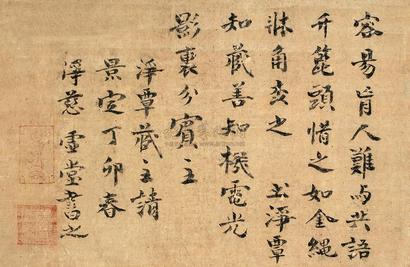 容易盲人難與共語
升篦頭惜之如金繩
牀角委之 出淨覃
知藏善知機電光
影裏分賓主
淨覃藏主請
景定丁卯春
淨慈虛堂書之